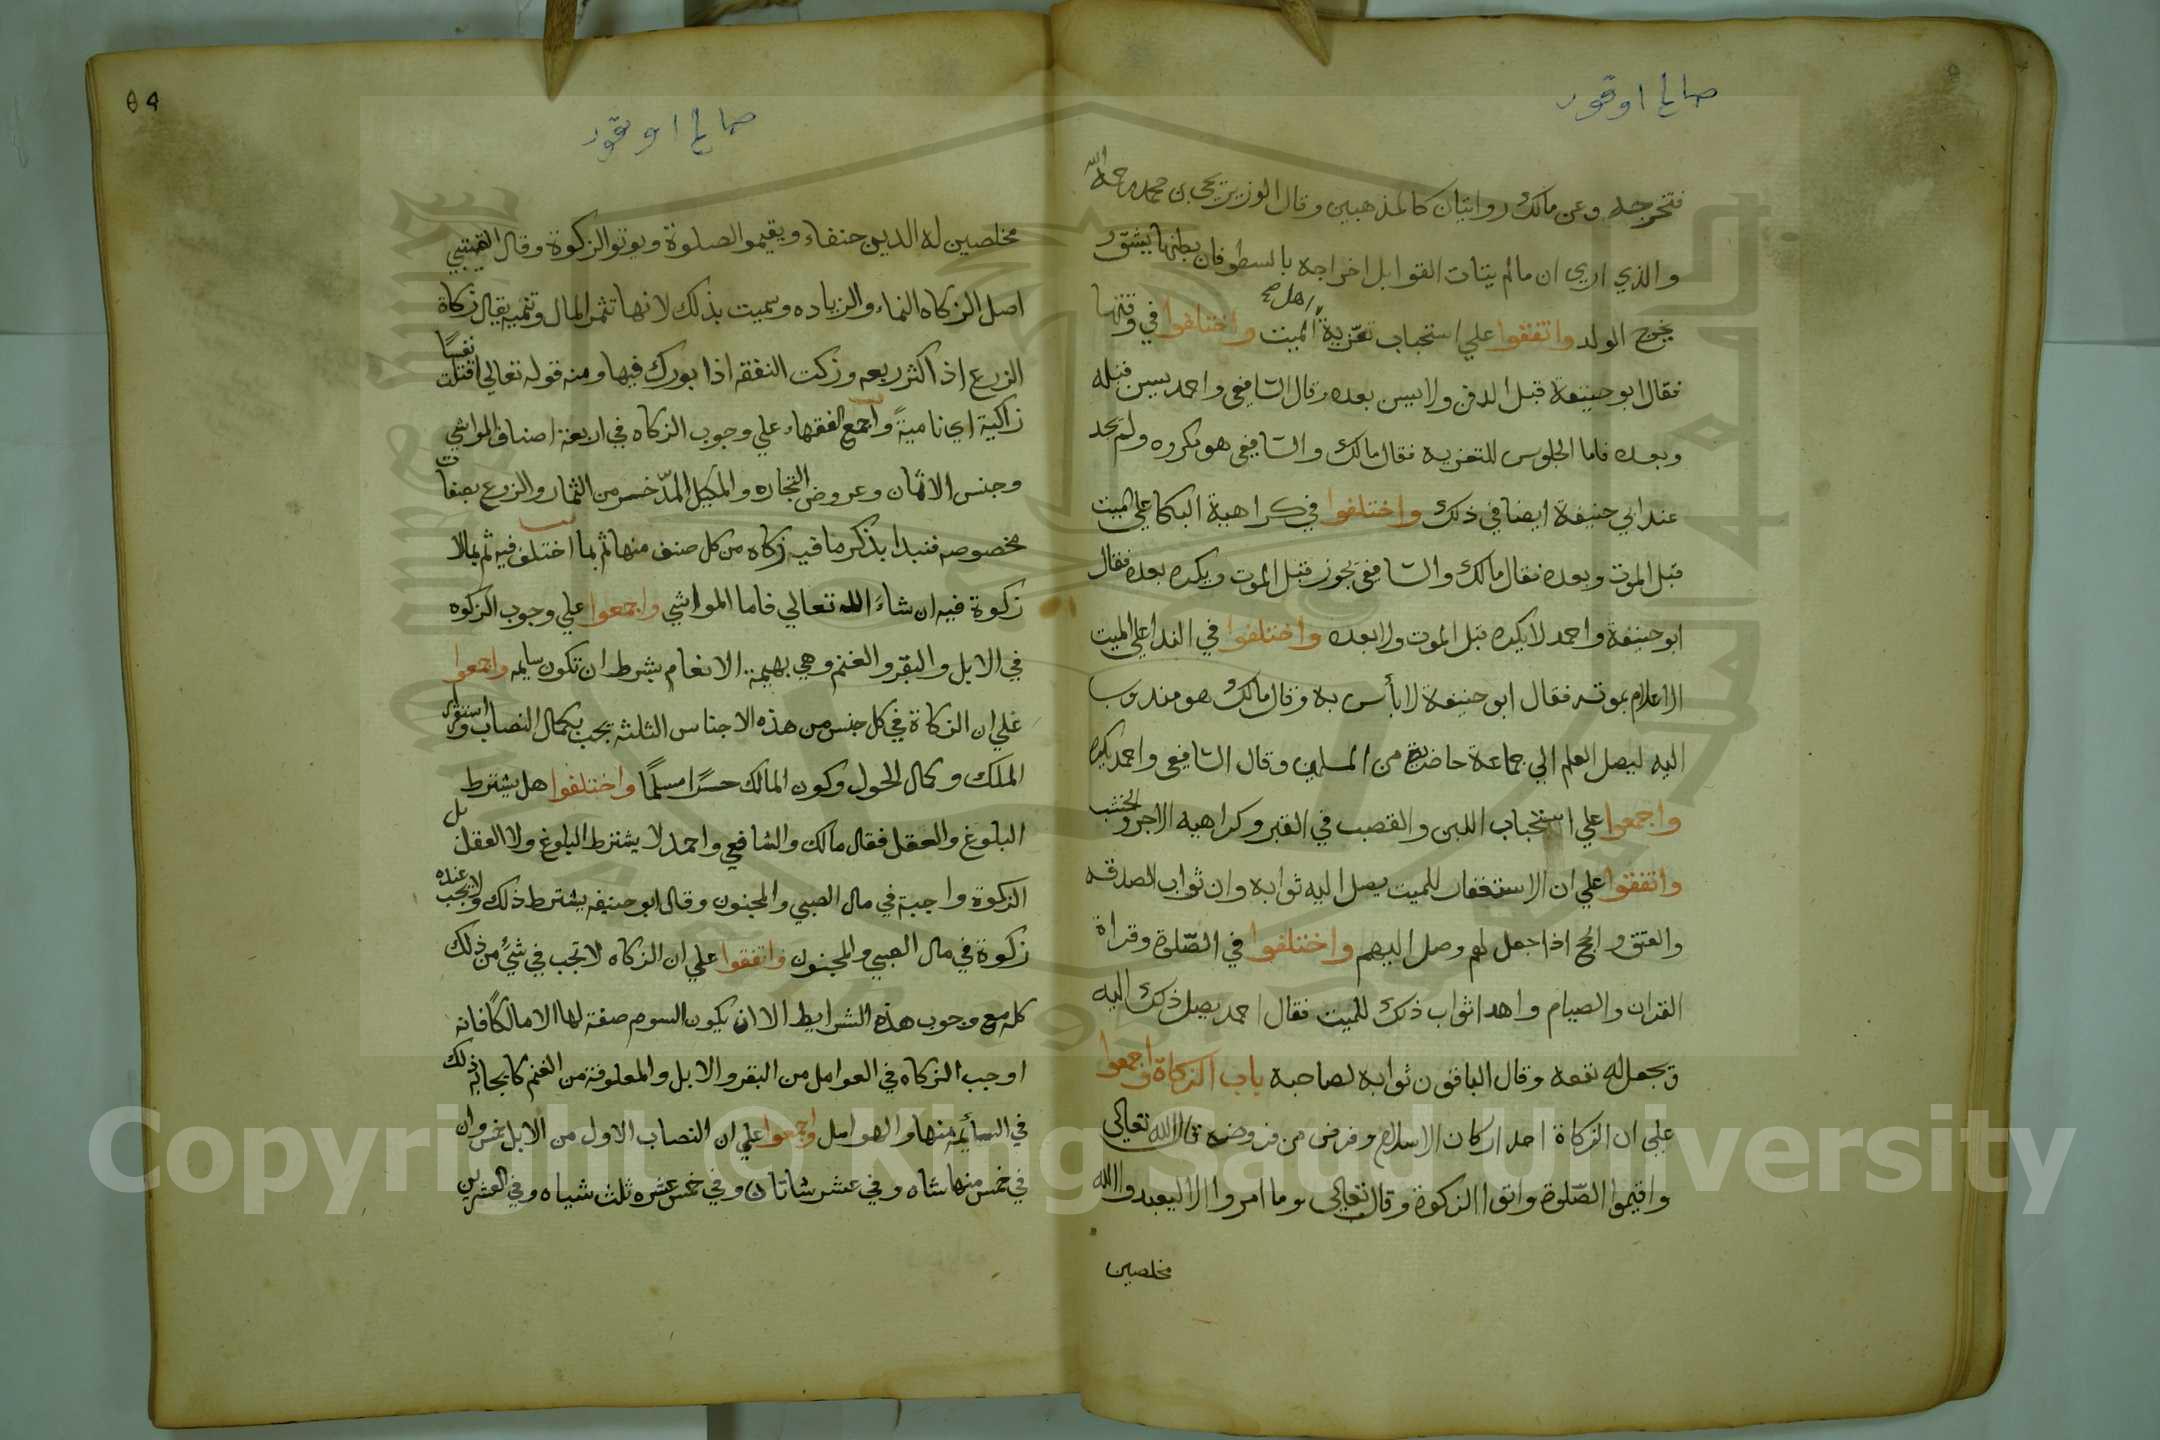 صالح اوقور
فتخرجه وعن مالك روايتان كالمذهبين وقال الوزير يحيى بن محمد رحمه الله
والذي ارى ان مالم يتات القوابل اخراجه بالسطو فان بطنها يشق و
يخرج الولد واتفقوا علي استحباب تعزية اهل صح الميت واختلفوا في وقتها
فقال ابو حنيفة قبل الدفن ولا يسن بعده وقال الشافعي واحمد يسن قبله
وبعده فاما الجلوس للتعزيه فقال مالك والشافعي هو مكروه ولم نجد
عند ابي حنيفة ايضا في ذلك واختلفوا في كراهية البكا علي الميت
قبل الموت وبعده فقال مالك والشافعي يجوز قبل الموت ويكره بعده فقال
ابو حنيفة واحمد لا يكره قبل الموت ولا بعده واختلفوا في الندا علي الميت
الاعلام بموته فقال ابو حنيفة لا بأس به وقال مالك هو مندوب
اليه ليصل العلم الي جماعة من المسلمين وقال الشافعي واحمد يكره
واجمعوا علي استحباب اللبن والقصب في القبر وكراهيه الاجر والخشب
واتفقوا علي ان الاستغفار للميت يصل اليه ثوابه وان ثواب الصدقه
والعتق والحج اذا جعل لهم وصل اليهم واختلفوا في الصّلوة وقراة
القران والصيام واهدا ثواب ذلك للميت فقال احمد يصل ذلك اليه
ويجعل له نفعه وقال الباقون ثوابه لصاحبه باب الزكاة واجمعوا
علي ان الزكاة احد اركان الاسلام وفرض من فروضه قال الله تعالى
واقيموا الصّلوة واتوا الزكوة وقال تعالى وما امروا الا ليعبدوا الله
مخلصين
٥٩
صالح اوقور
مخلصين له الدين حنفاء ويقيموا الصلوة ويوتوا الزكوة وقال القتيبي
اصل الزكاه النماء والزياده وسميت بذلك لانها تثمر المال وتنميه يقال زكاة
الزرع إذ اكثر ريعه وزكت النفقه اذا بورك فيها ومنه قوله تعالي اقتلت نفسًا
زاكية اي نامية واجمع الفقهاء علي وجوب الزكاه في اربعة اصناف المواشي
وجنس الاثمان وعروض التجاره والمكيل المدّخر من الثمار والزرع بصفات
مخصوصه فنبدا بذكر ما فيه زكاه من كل صنف منها ثم بما اختلف فيه ثم بما لا
زكوة فيه ان شاء الله تعالي فاما المواشي واجمعوا علي وجوب الزكوه
في الابل والبقر والغنم وهي بهيمة الانعام بشرط ان تكون سايمه واجمعوا
علي ان الزكاة في كل جنس من هذه الاجناس الثلثه تجب بكمال النصاب واستقرار
الملك وكمال الحول وكون المالك حرًا مسلمًا واختلفوا هل يشترط
البلوغ والعقل فقال مالك والشافعي واحمد لا يشترط البلوغ ولا العقل بل
الزكوة واجبة في مال الصبي والمجنون وقال ابو حنيفه يشترط ذلك ولا يجب عنده
زكوة في مال الصبي والمجنون واتفقوا علي ان الزكاه لا تجب في شئ من ذلك
كله مع وجوب هذه الشرايط الا ان يكون السوم صفة لها الا مالكًا فانه
اوجب الزكاه في العوامل من البقر والابل والمعلوفة من الغنم كايجابه ذلك
في السائمه منها والهوامل واجمعوا علي ان النصاب الاول من الابل خمس وان
في خمس منها شاه وفي عشر شاتان وفي خمس عشره ثلث شياه وفي العشرين
Copyright © King Saud University